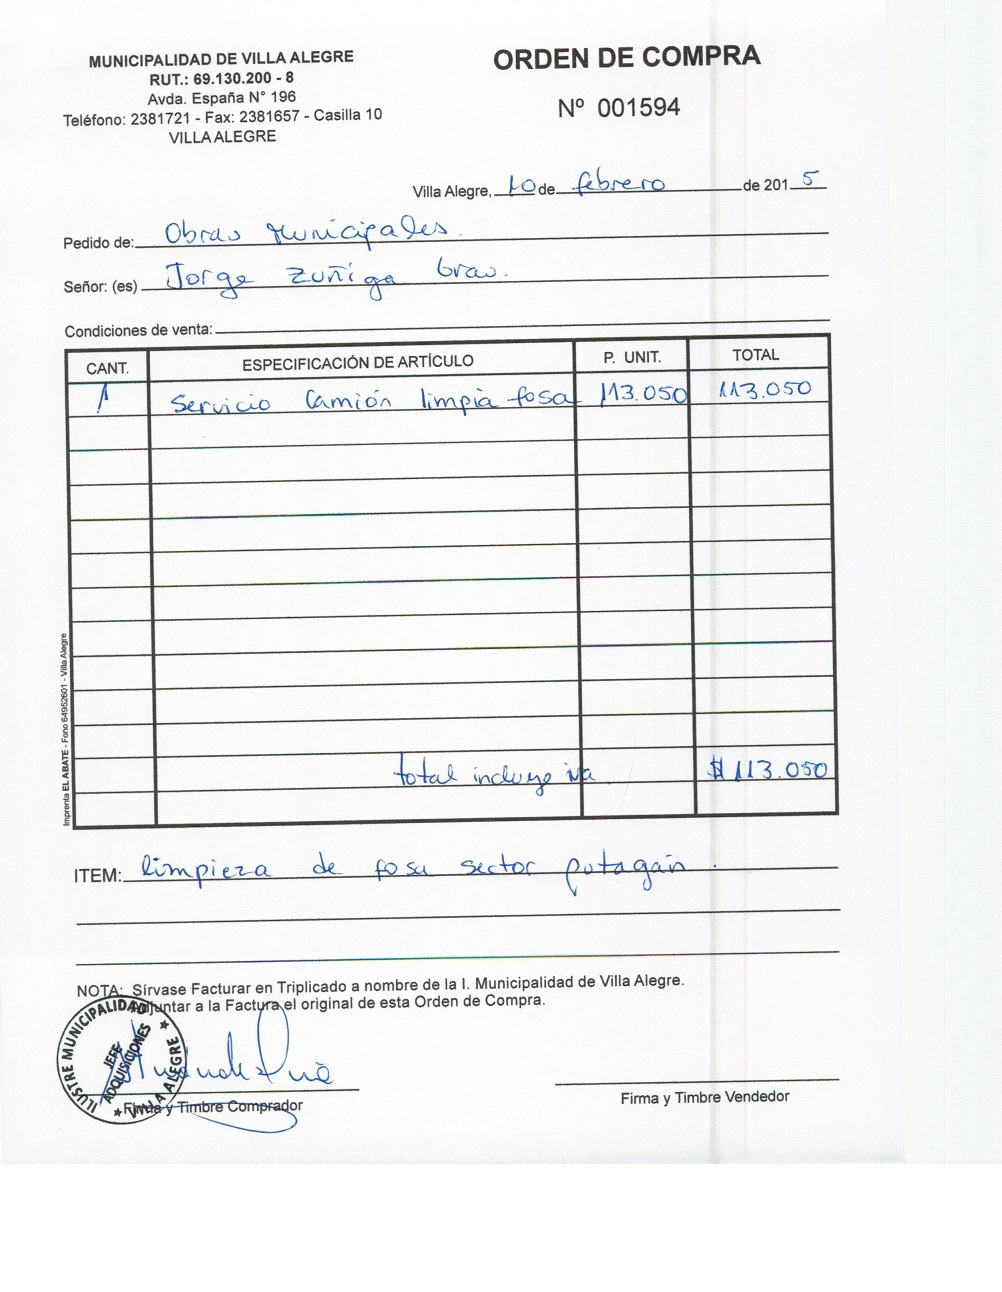 MUNICIPALIDAD DE VILLA ALEGRE
RUT.: 69.130.200 - 8
Avda. España N° 196
Teléfono: 2381721 - Fax: 2381657 - Casilla 10
VILLA ALEGRE
ORDEN DE COMPRA
Nº 001594
Villa Alegre, 10 de febrero de 2015
Pedido de: Obras Municipales.
Señor: (es) Jorge Zuñiga Grav.
Condiciones de venta:
CANT. ESPECIFICACIÓN DE ARTÍCULO P. UNIT. TOTAL
1 Servicio Camión limpia fosa 113.050 113.050
total incluye iva $ 113.050
Imprenta EL ABATE - Fono 64952601 - Villa Alegre
ITEM: limpieza de fosa sector putagán.
NOTA: Sírvase Facturar en Triplicado a nombre de la I. Municipalidad de Villa Alegre.
Adjuntar a la Factura el original de esta Orden de Compra.
ILUSTRE MUNICIPALIDAD
JEFE
ADQUISICIONES
VILLA ALEGRE
Firma y Timbre Comprador
Firma y Timbre Vendedor